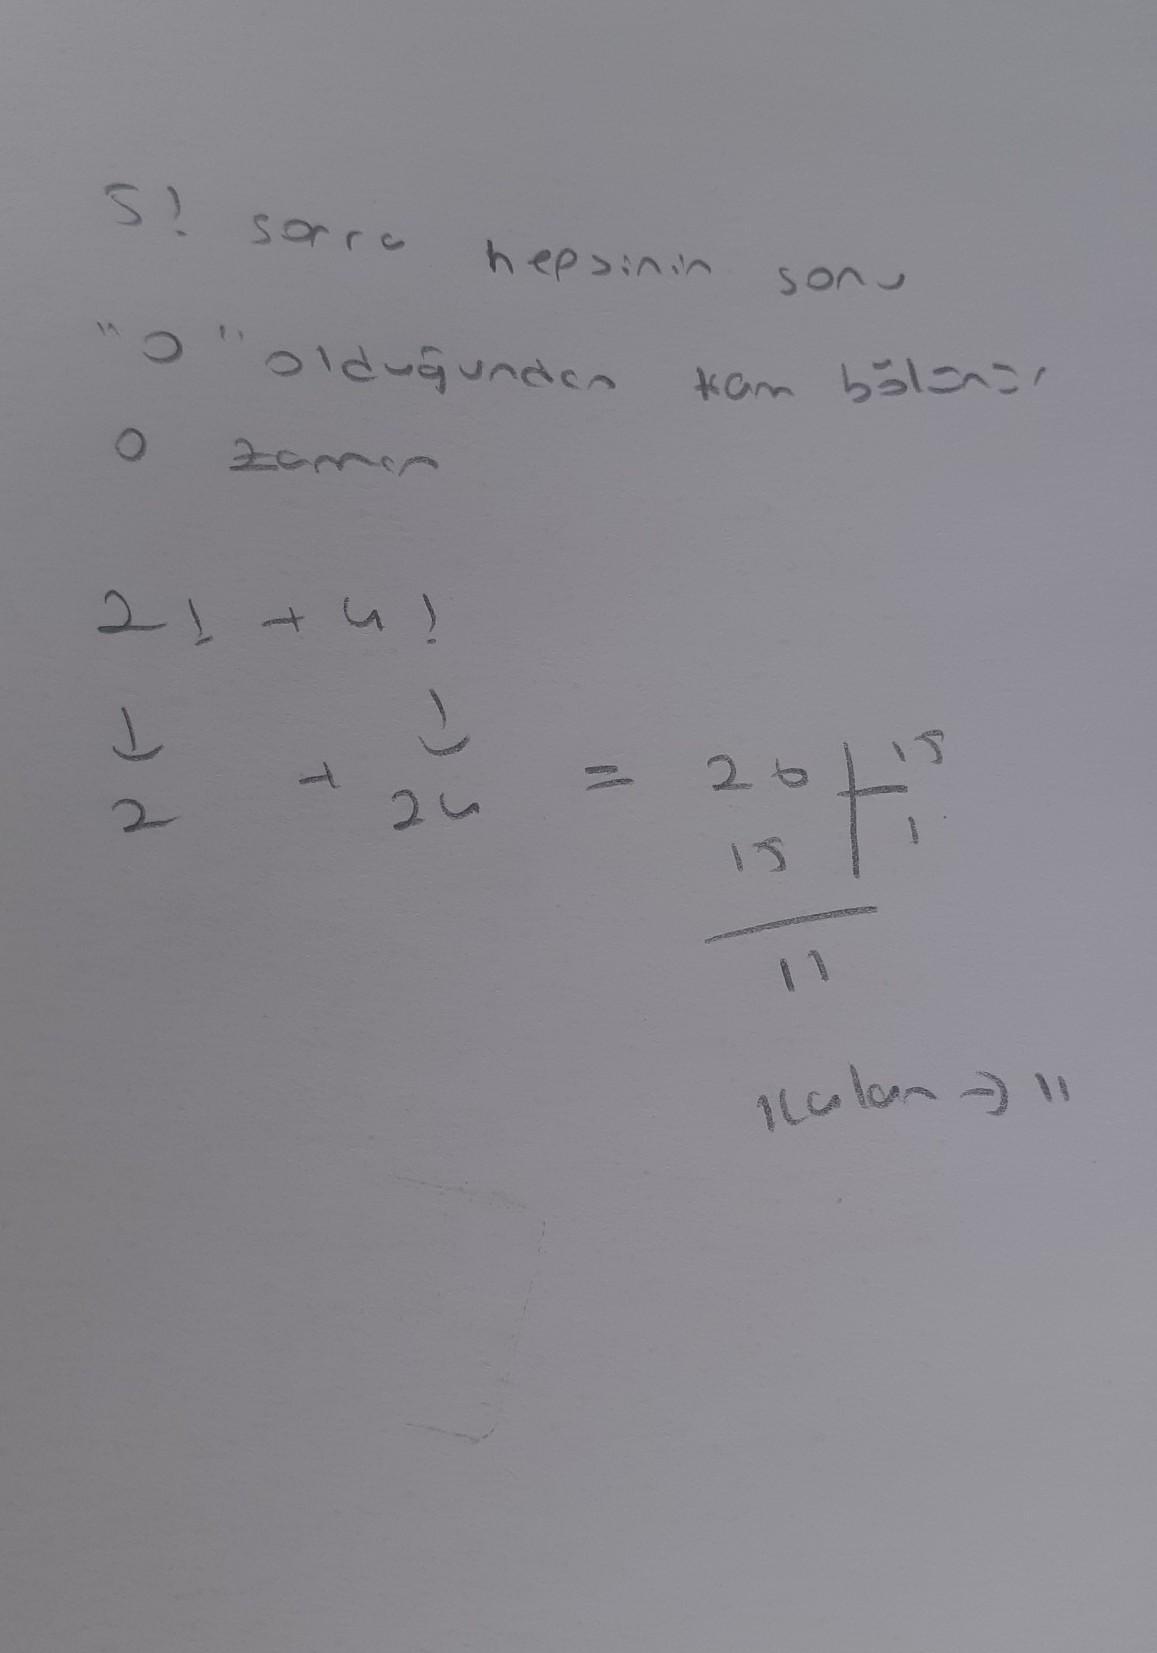 5! sonra hepsinin sonu
"0" olduğundan tam bölünür
0 zaman
2! + 4!
↓ ↓
2 + 24 = 26 | 15
15 | 1
11
Kalan → 11